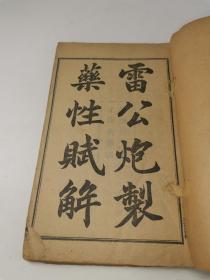 雷公炮製
藥性賦解